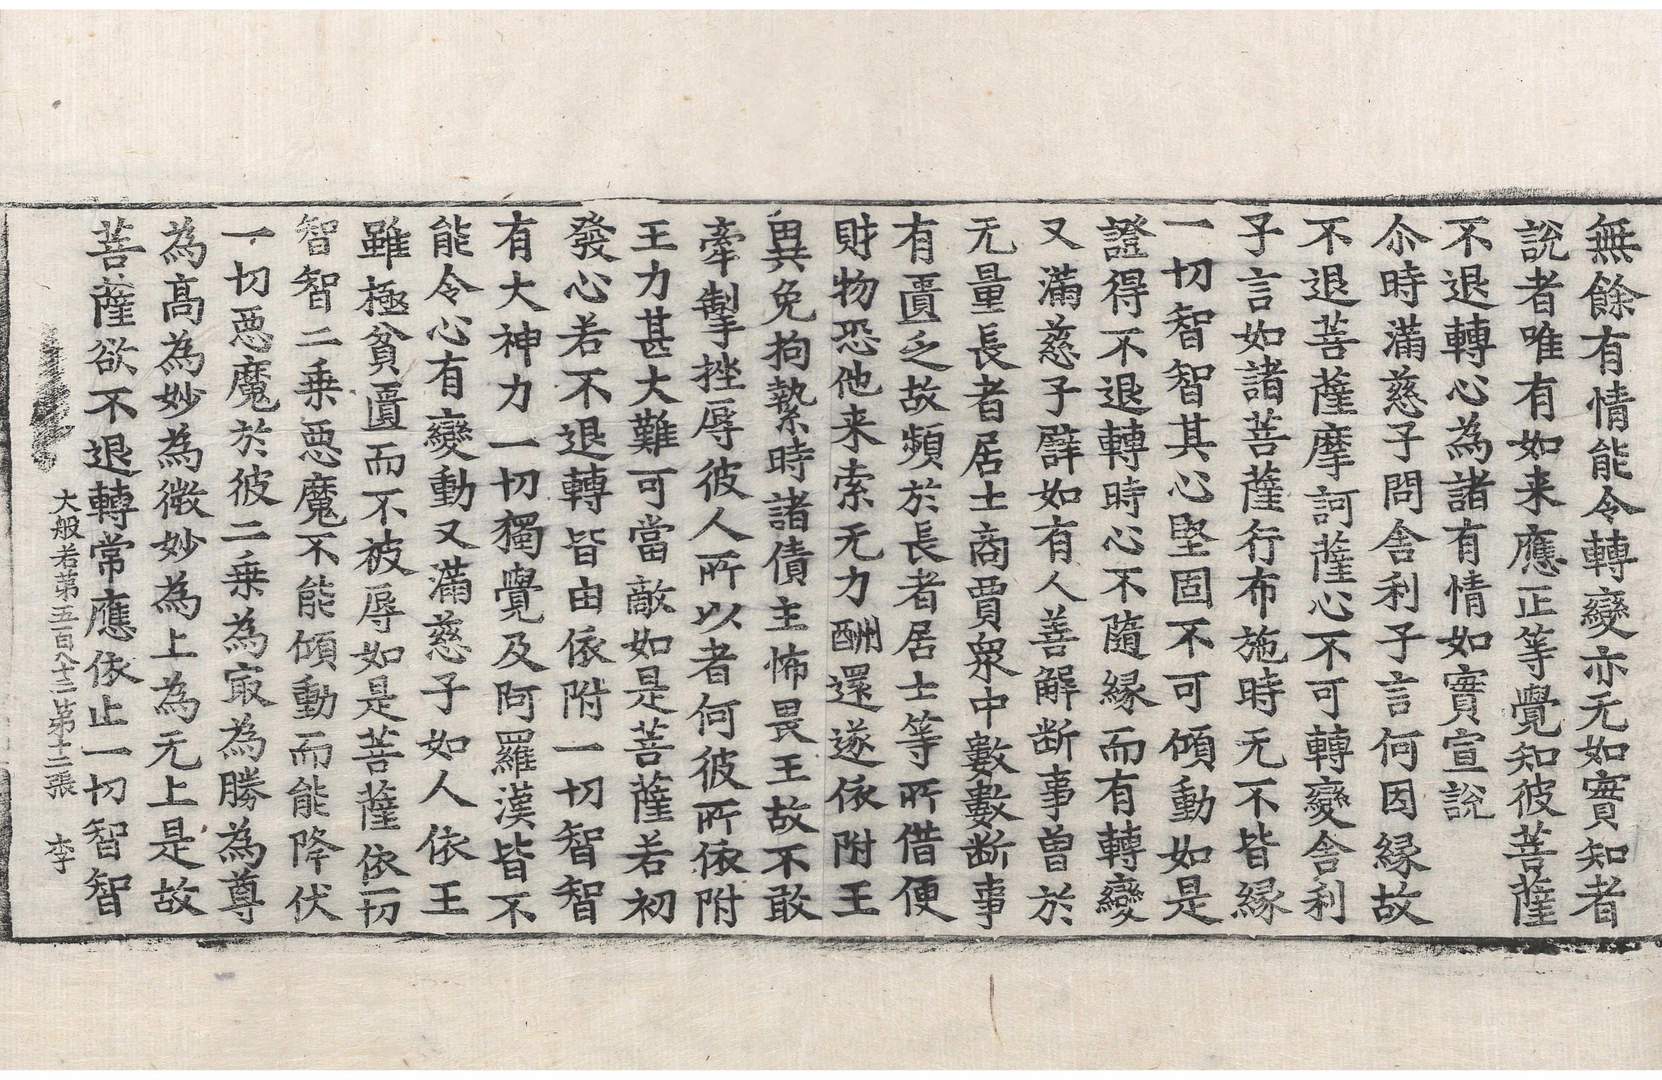 無餘有情能令轉變亦无如實知者
說者唯有如来應正等覺知彼菩薩
不退轉心為諸有情如實宣說
尒時滿慈子問舍利子言何因緣故
不退菩薩摩訶薩心不可轉變舍利
子言如諸菩薩行布施時无不皆緣
一切智智其心堅固不可傾動如是
證得不退轉時心不隨緣而有轉變
又滿慈子譬如有人善解断事曾於
无量長者居士商賈衆中數數断事
有匱乏故頻於長者居士等所借便
財物恐他来索无力酬還遂依附王
異免拘縶時諸債主怖畏王故不敢
牽掣挫辱彼人所以者何彼所依附
王力甚大難可當敵如是菩薩若初
發心若不退轉皆由依附一切智智
有大神力一切獨覺及阿羅漢皆不
能令心有變動又滿慈子如人依王
雖極貧匱而不被辱如是菩薩依一切
智智二乗惡魔不能傾動而能降伏
一切惡魔於彼二乗為㝡為勝為尊
為髙為妙為微妙為上為无上是故
菩薩欲不退轉常應依止一切智智
大般若第五百八十二 第十二張 李